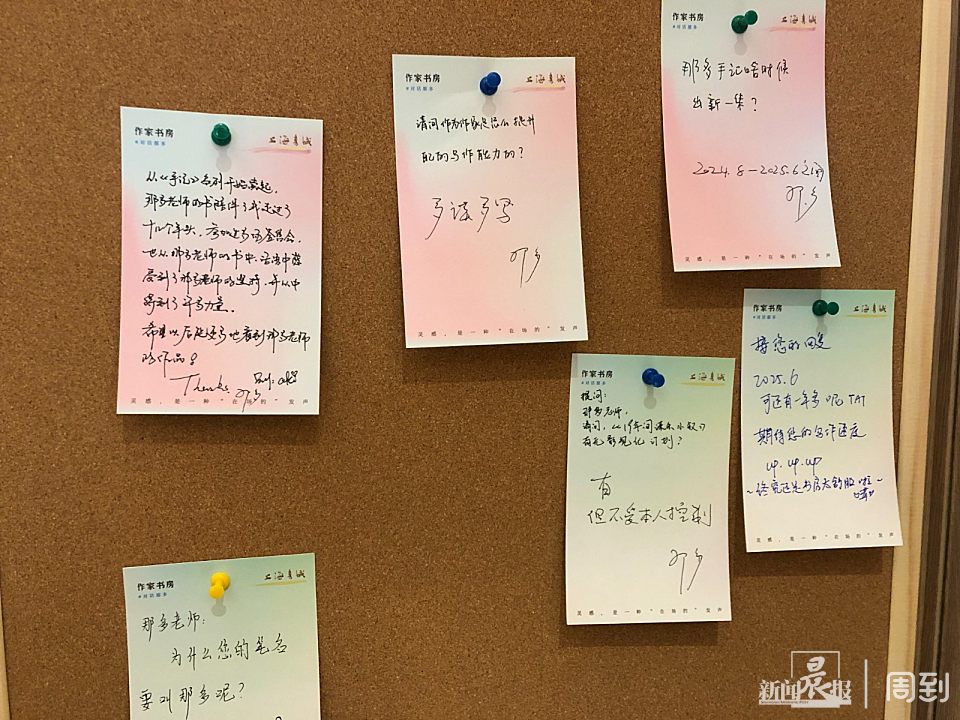 作家书房
#对话服务
上海书城
从《手记》系列开始读起，
那多老师的书陪伴了我走过了
十几个年头，参加过多场签售会，
也从那多老师的书中、活动中感
受到了那多老师的坚持，并从中
得到了许多力量。
希望以后能更多地看到那多老师
的作品！
Thanks
那多
灵感，是一种"在场的"发声
作家书房
#对话服务
上海书城
请问作为作家是怎么提升
自己的写作能力的？
多读多写
那多
灵感，是一种"在场的"发声
作家书房
#对话服务
上海书城
那多手记啥时候
出新一集？
2024.8-2025.6之间
那多
灵感，是一种"在场的"发声
作家书房
#对话服务
上海书城
提问：
那多老师，
请问，《19年间谋杀小叙》
有无影视化计划？
有
但不受本人控制
那多
灵感，是一种"在场的"发声
作家书房
#对话服务
上海书城
接您的回复
2025.6
可还有一年多呢TAT
期待您的写作速度
up.up.up
灵感，是一种"在场的"发声
作家书房
#对话服务
上海书城
那多老师：
为什么您的笔名
要叫那多呢？
新闻晨报
周到